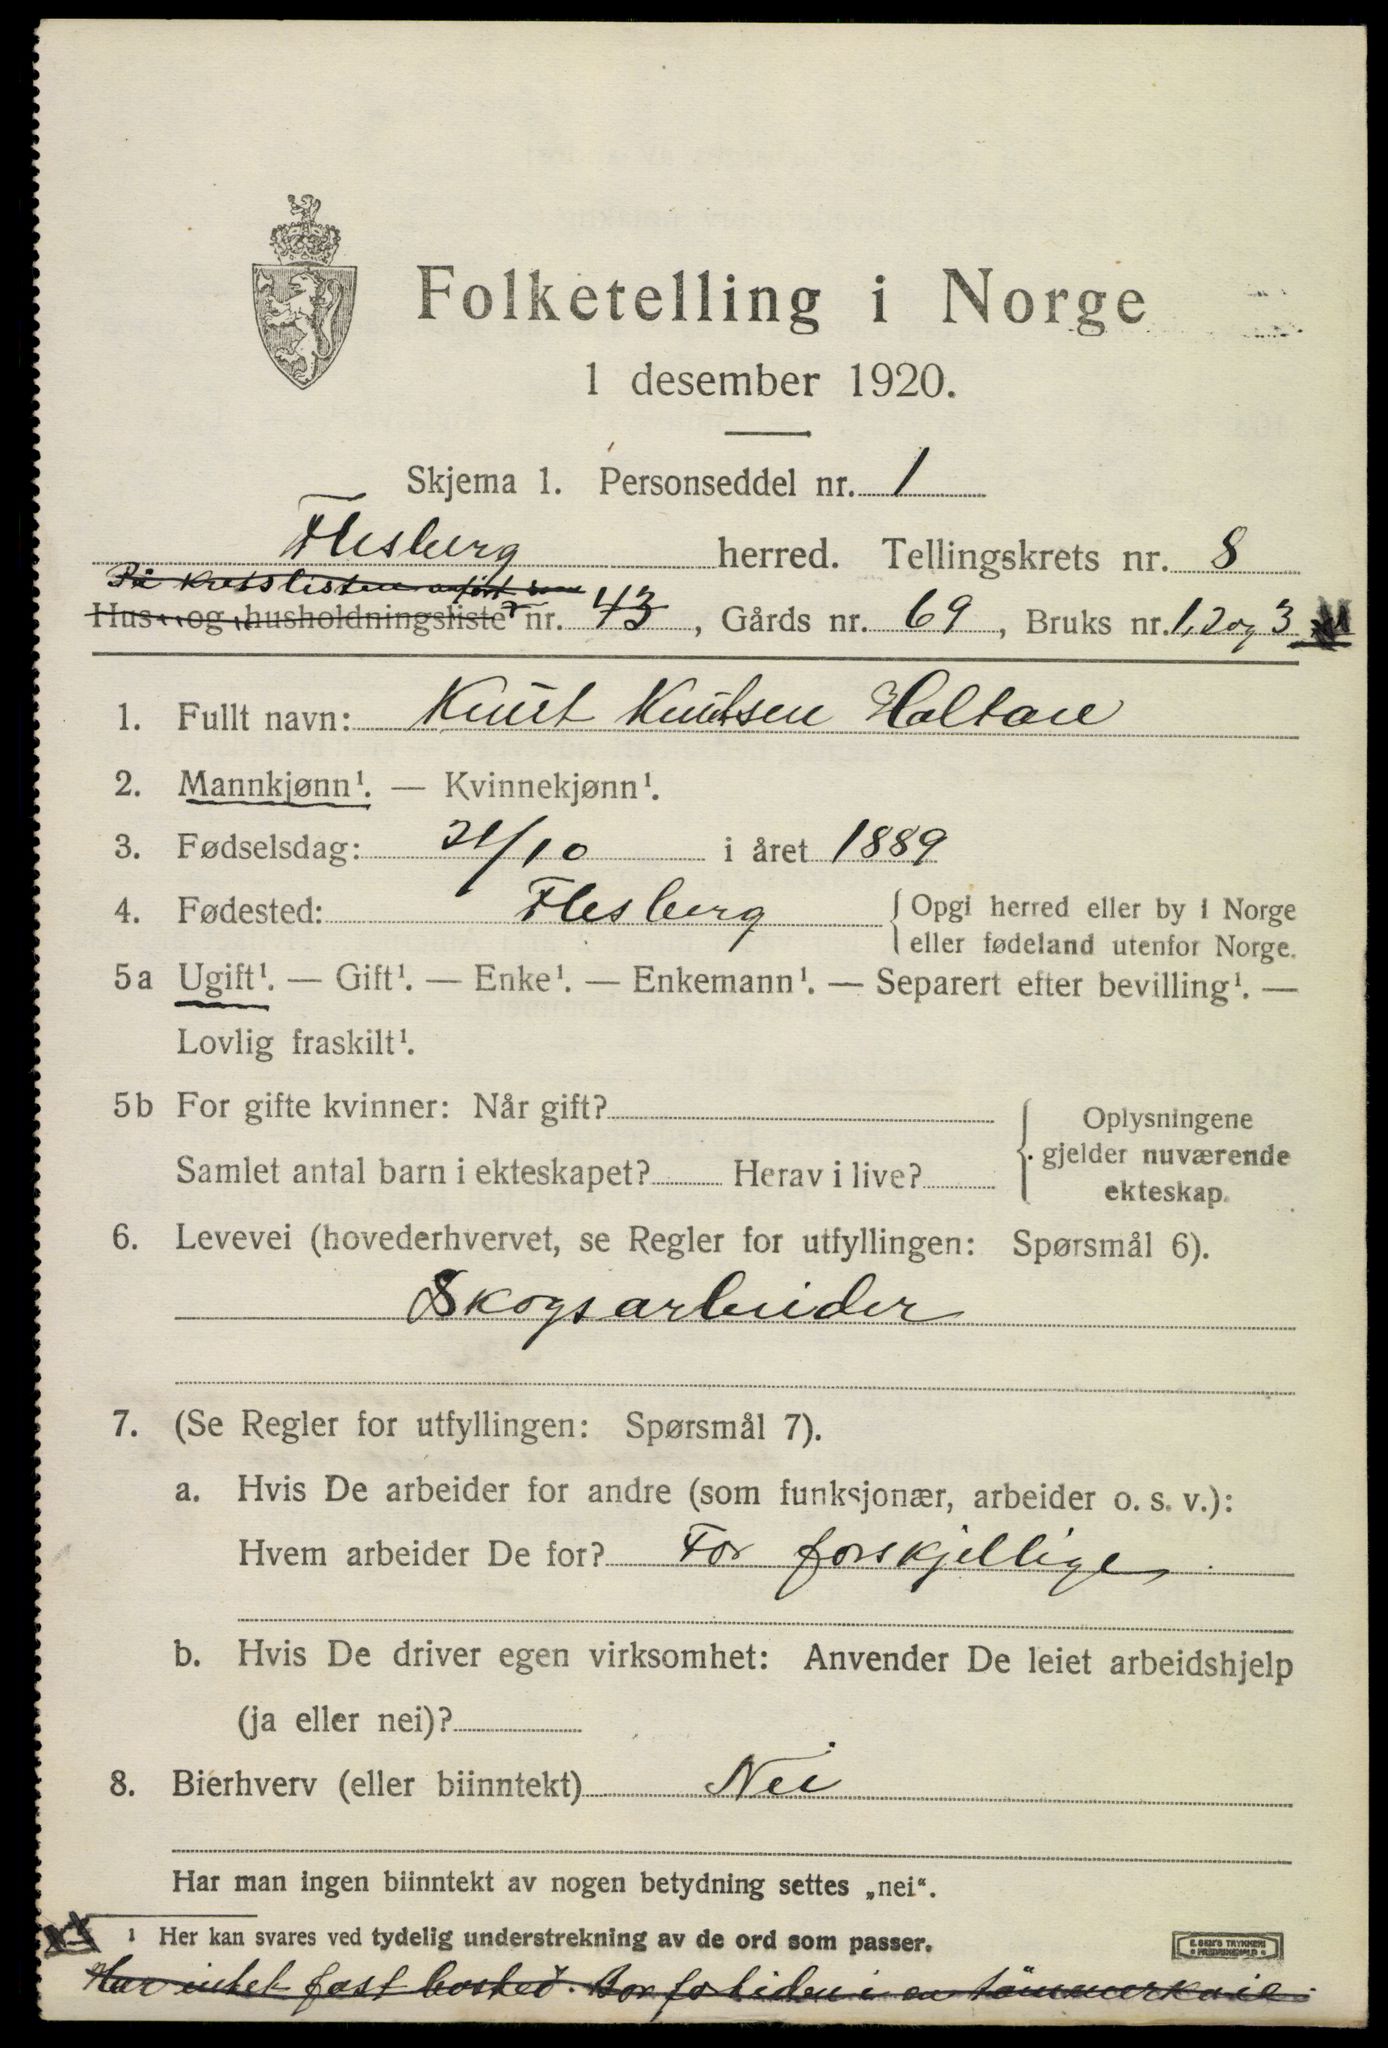 Folketelling i Norge
1 desember 1920.
Skjema 1. Personseddel nr. 1
Flesberg herred. Tellingskrets nr. 8
På kretslisten opført som
Hus- og husholdningsliste nr. 43, Gårds nr. 69, Bruks nr. 1, 2 og 3
1. Fullt navn: Knut Knutsen Haltare
2. Mannkjønn¹. — Kvinnekjønn¹.
3. Fødselsdag: 21/10 i året 1889
4. Fødested: Flesberg { Opgi herred eller by i Norge
eller fødeland utenfor Norge.
5a Ugift¹. — Gift¹. — Enke¹. — Enkemann¹. — Separert efter bevilling¹. —
Lovlig fraskilt¹.
5b For gifte kvinner: Når gift? Oplysningene
gjelder nuværende
Samlet antal barn i ekteskapet? Herav i live?
ekteskap.
6. Levevei (hovederhvervet, se Regler for utfyllingen: Spørsmål 6).
Skogsarbeider
7. (Se Regler for utfyllingen: Spørsmål 7).
a. Hvis De arbeider for andre (som funksjonær, arbeider o. s. v.):
Hvem arbeider De for? For forskjellige
b. Hvis De driver egen virksomhet: Anvender De leiet arbeidshjelp
(ja eller nei)?
8. Bierhverv (eller biinntekt) Nei
Har man ingen biinntekt av nogen betydning settes „nei“.
¹ Her kan svares ved tydelig understrekning av de ord som passer.
E. SEM'S TRYKKERI
FREDRIKSHALD
Har intet fast bosted. Bor for tiden i en tømmerkoie.